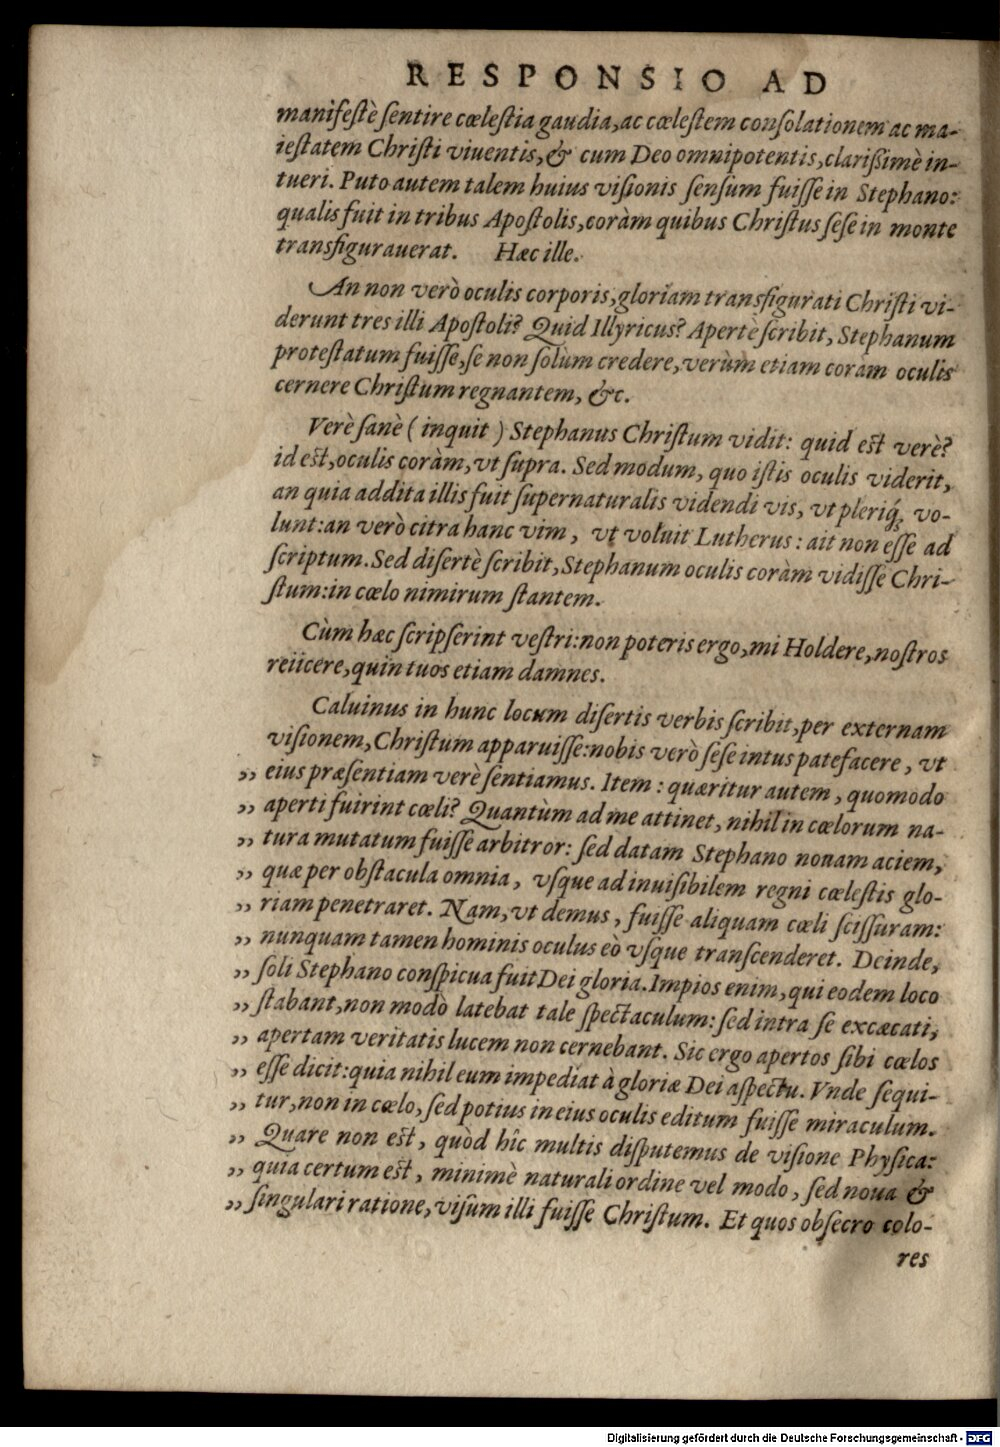 RESPONSIO AD
manifestè ſentire cœleſtia gaudia, ac cœleſtem conſolationem ac ma-
ieſtatem Chriſti viuentis, & cum Deo omnipotentis, clariſsimè in-
tueri. Puto autem talem huius viſionis ſenſum fuiſſe in Stephano:
qualis fuit in tribus Apoſtolis, coràm quibus Chriſtus ſeſe in monte
transfigurauerat. Hæc ille.
An non verò oculis corporis, gloriam transfigurati Chriſti vi-
derunt tres illi Apoſtoli? Quid Illyricus? Apertè ſcribit, Stephanum
proteſtatum fuiſſe, ſe non ſolùm credere, verùm etiam coram oculis
cernere Chriſtum regnantem, &c.
Verè ſanè (inquit) Stephanus Chriſtum vidit: quid est verè?
id est, oculis coràm, vt ſupra. Sed modum, quo iſtis oculis viderit,
an quia addita illis fuit ſupernaturalis videndi vis, vt pleriq́; vo-
lunt: an verò citra hanc vim, vt voluit Lutherus: ait non eſſe ad
ſcriptum. Sed diſertè ſcribit, Stephanum oculis coràm vidiſſe Chri-
ſtum: in cœlo nimirum ſtantem.
Cùm hæc ſcripſerint veſtri: non poteris ergo, mi Holdere, noſtros
reiicere, quin tuos etiam damnes.
Caluinus in hunc locum diſertis verbis ſcribit, per externam
viſionem, Chriſtum apparuiſſe: nobis verò ſeſe intus patefacere, vt
„ eius præſentiam verè ſentiamus. Item: quæritur autem, quomodo
„ aperti fuirint cœli? Quantùm ad me attinet, nihil in cœlorum na-
„ tura mutatum fuiſſe arbitror: ſed datam Stephano nouam aciem,
„ quæ per obſtacula omnia, vſque ad inuiſibilem regni cœleſtis glo-
„ riam penetraret. Nam, vt demus, fuiſſe aliquam cœli ſciſſuram:
„ nunquam tamen hominis oculus eò vſque tranſcenderet. Deinde,
„ ſoli Stephano conſpicua fuit Dei gloria. Impios enim, qui eodem loco
„ ſtabant, non modò latebat tale ſpectaculum: ſed intra ſe excæcati,
„ apertam veritatis lucem non cernebant. Sic ergo apertos ſibi cœlos
„ eſſe dicit: quia nihil eum impediat à gloriæ Dei aſpectu. Vnde ſequi-
„ tur, non in cœlo, ſed potius in eius oculis editum fuiſſe miraculum.
„ Quare non est, quòd hîc multis diſputemus de viſione Phyſica:
„ quia certum est, minimè naturali ordine vel modo, ſed noua &
„ ſingulari ratione, viſum illi fuiſſe Chriſtum. Et quos obſecro colo-
res
Digitalisierung gefördert durch die Deutsche Forschungsgemeinschaft - DFG